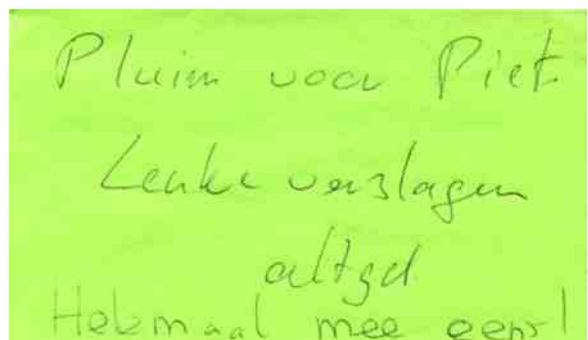 Pluim voor Piet
Leuke verslagen
altijd
Helemaal mee eens!